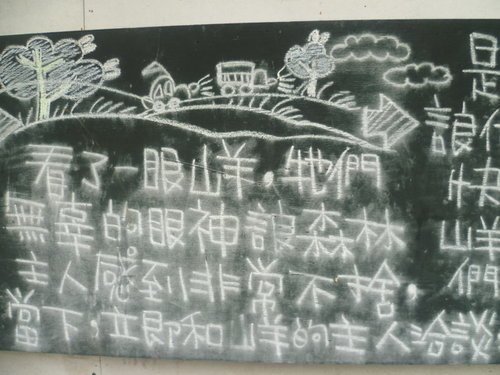 看了一眼山羊,牠們
無辜的眼神讓森林
主人感到非常不捨,
當下,立即和山羊的主人洽談
是
讓
快
山羊
們